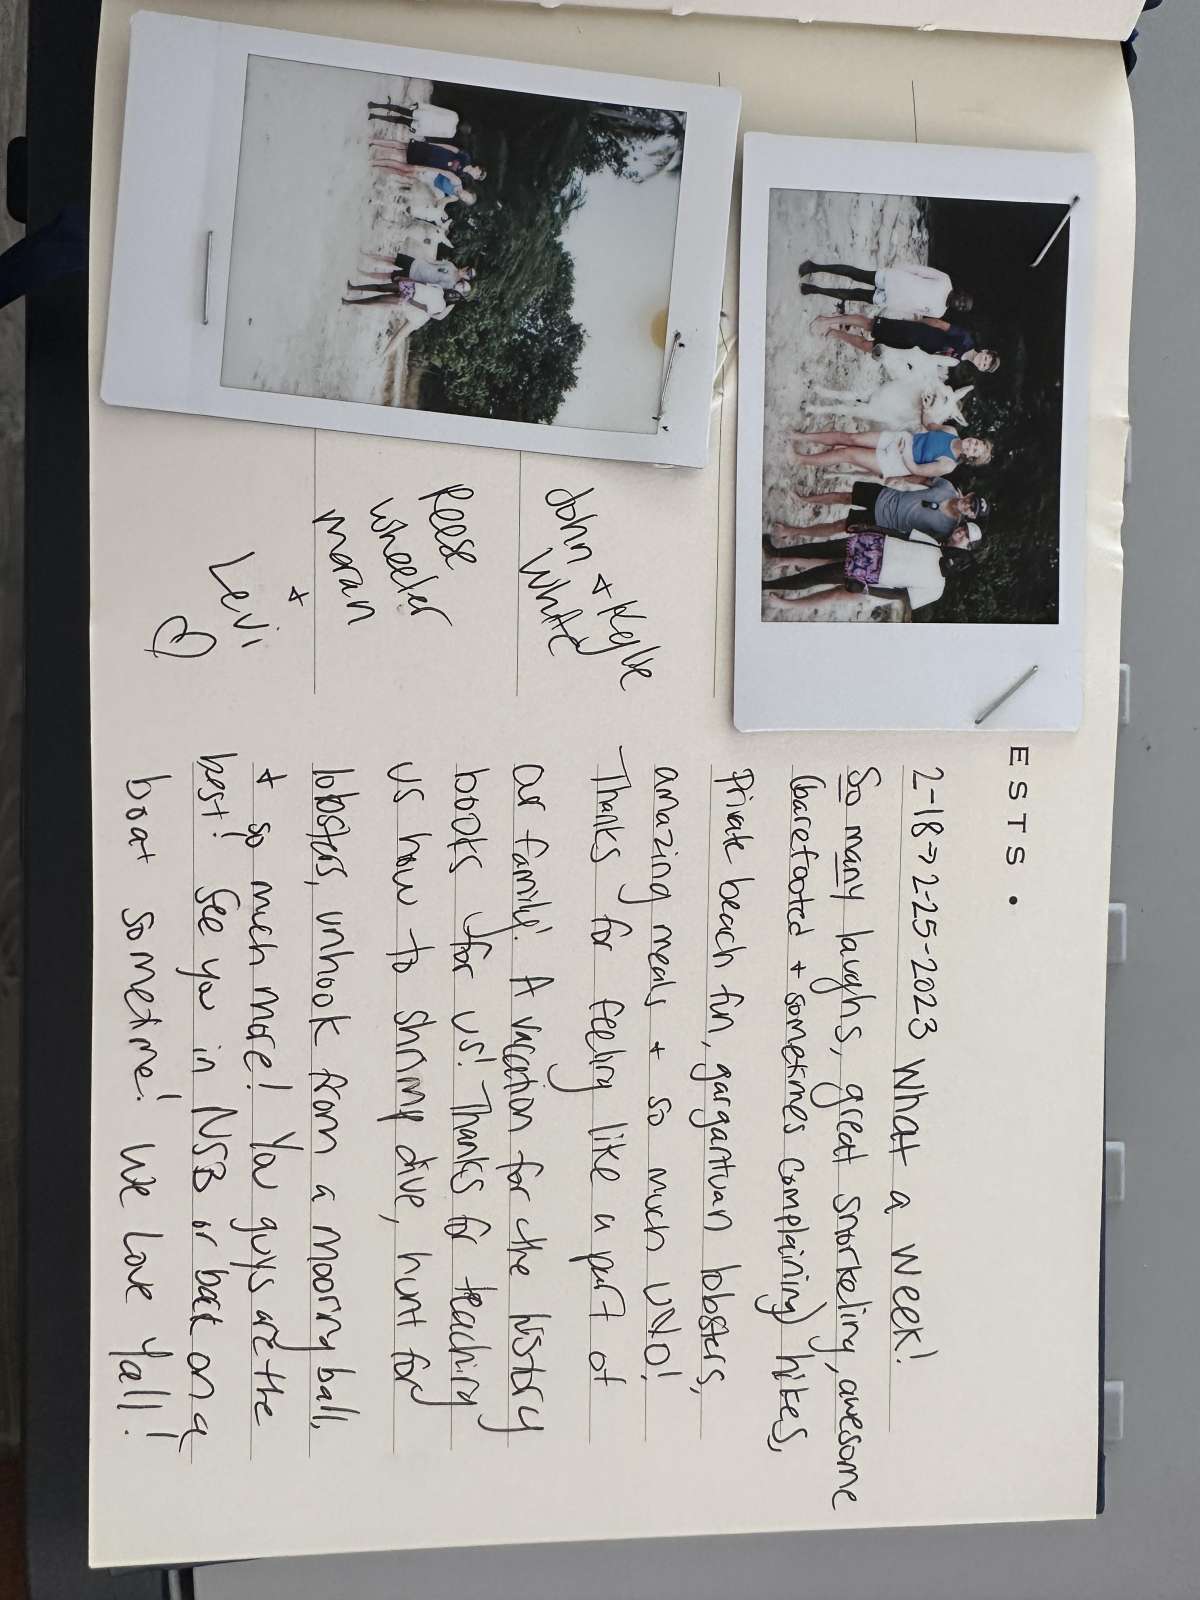 ESTS •
2-18→2-25-2023 What a week!
So many laughs, great snorkeling, awesome
(barefooted + sometimes complaining) hikes,
Private beach fun, gargantuan lobsters,
amazing meals + so much UNO!
Thanks for feeling like a part of
our family! A vacation for the history
books for us! Thanks for teaching
us how to shrimp dive, hunt for
lobsters, unhook from a mooring ball,
+ so much more! You guys are the
best! See you in NSB or back on a
boat sometime! We Love Yall!
John + Kylie
White
Reese
Wheeler
Moran
+
Levi